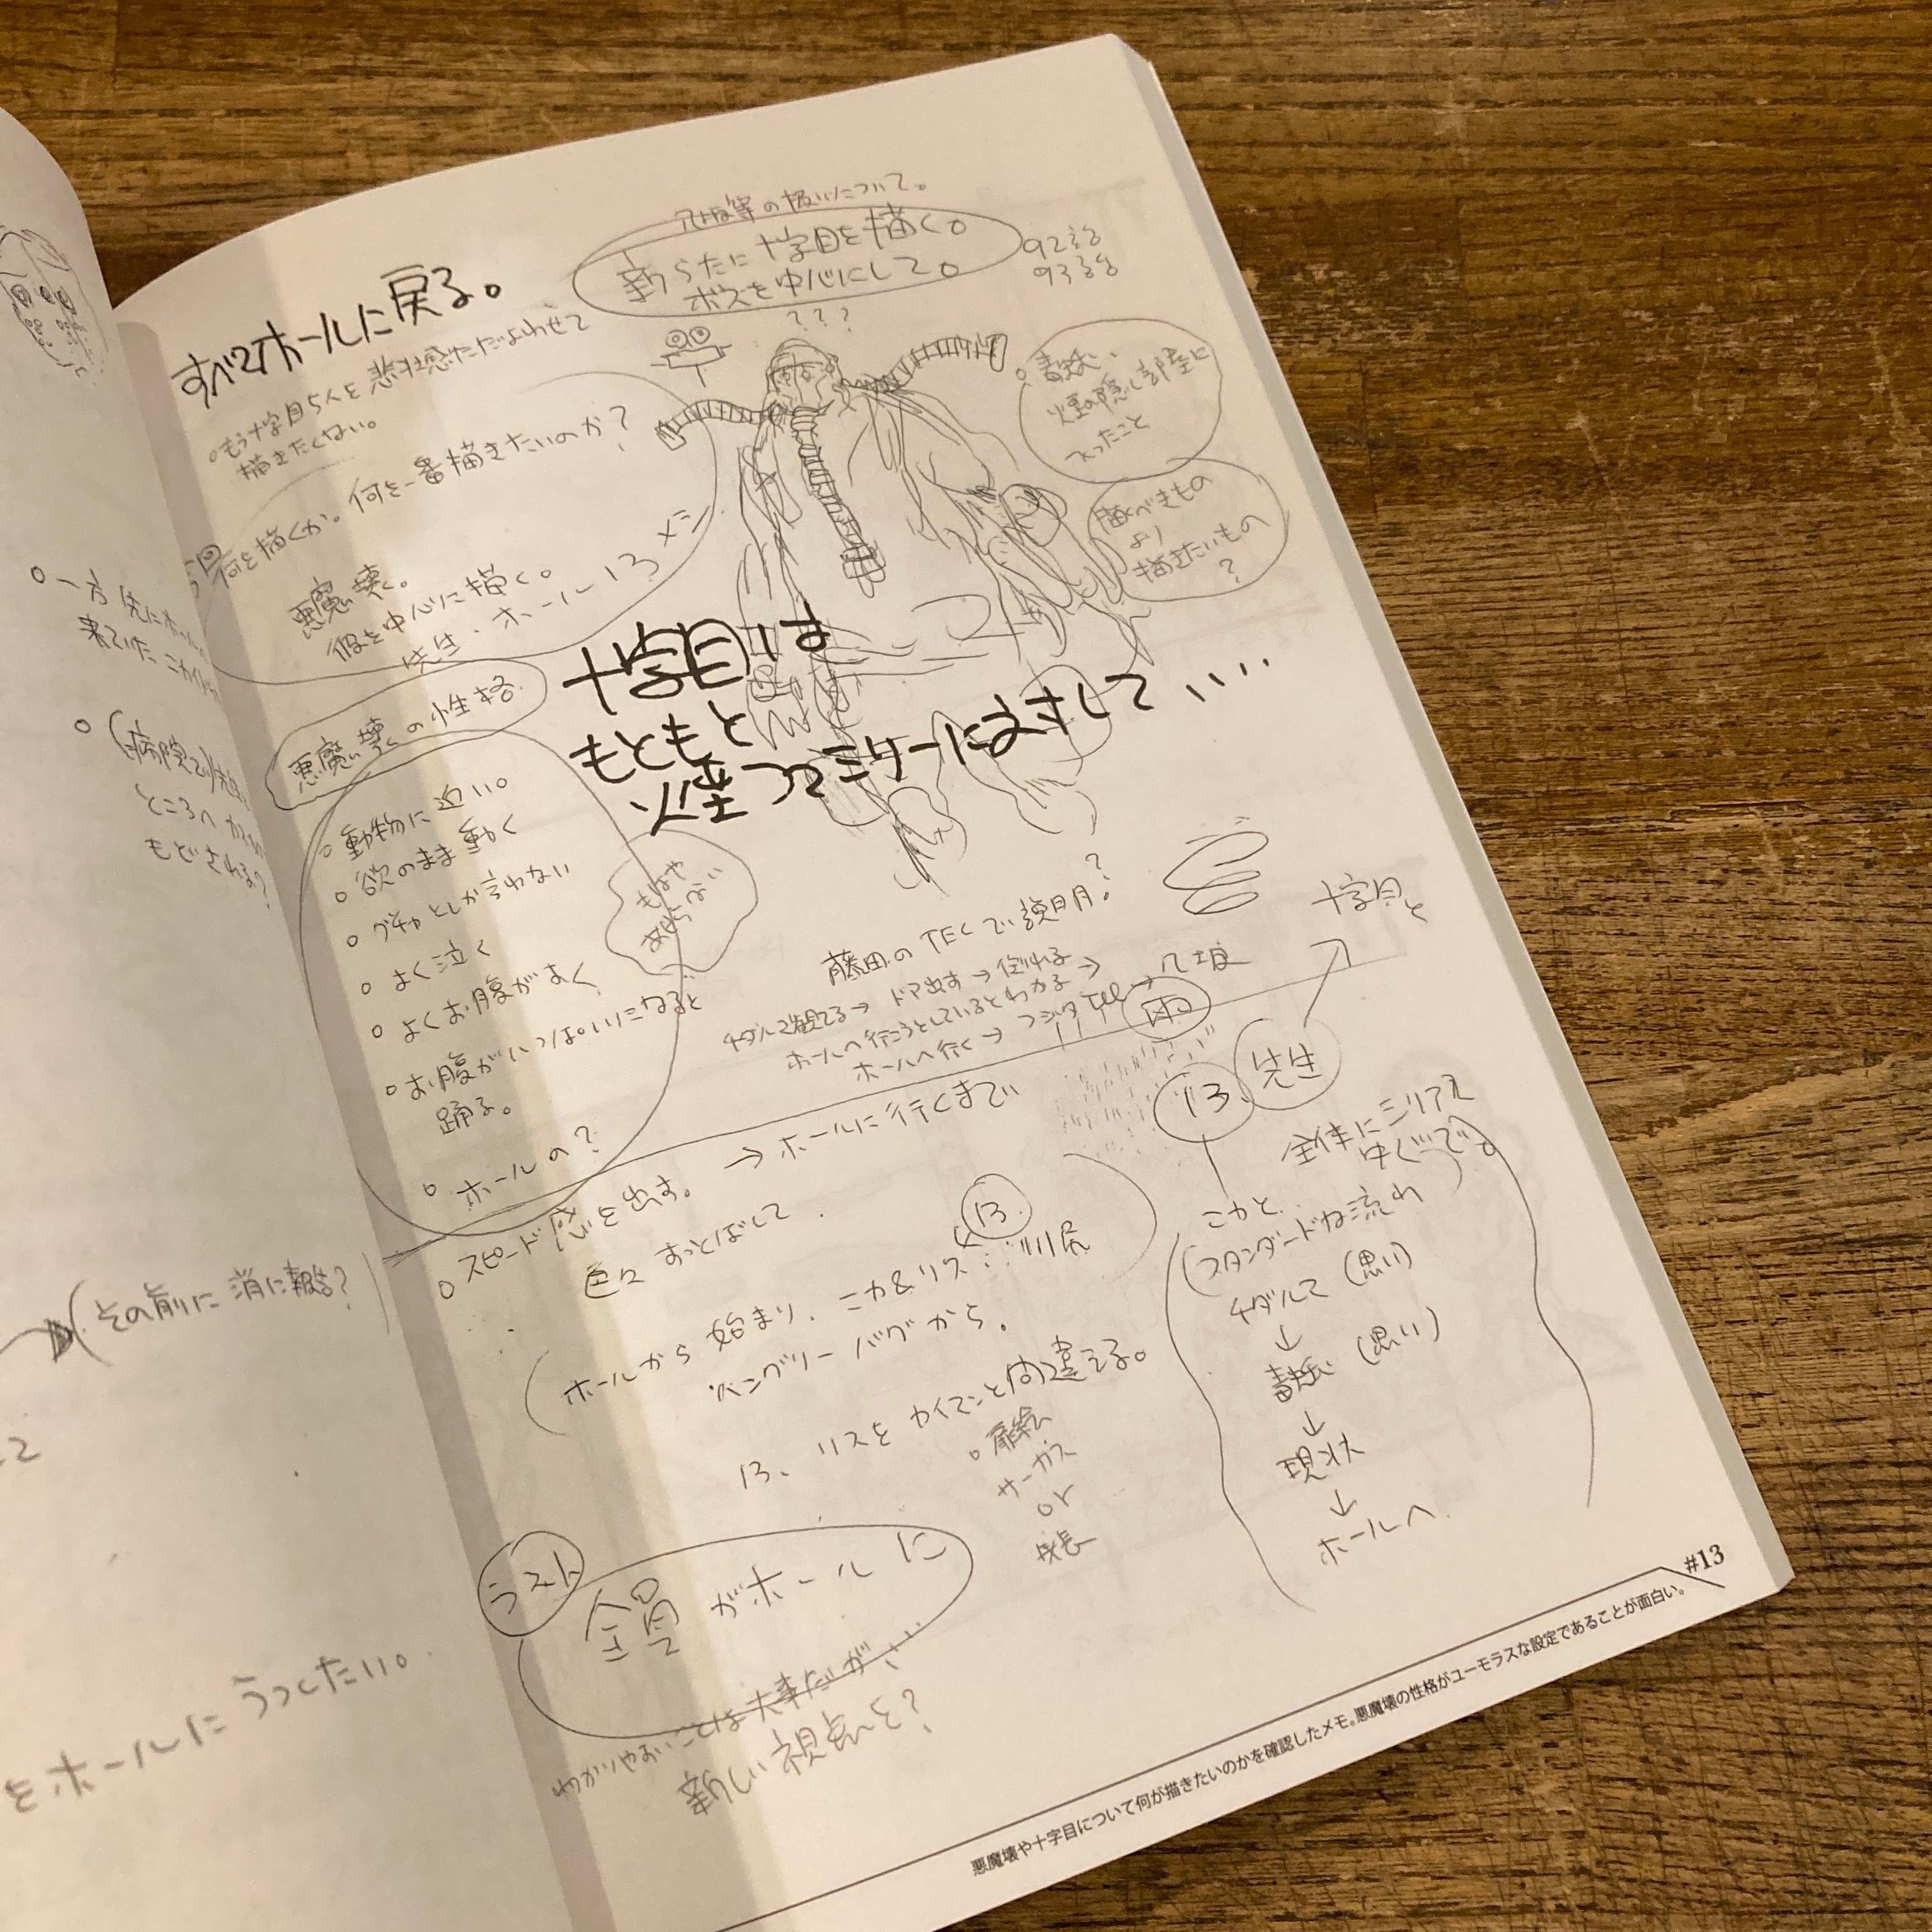 新らたに十字目を描く。
ボスを中心にして。
92話
93話
???
すべてホールに戻る。
もう十字目5人を悲壮感ただよわせて
描きたくない。
何を描くか。何を一番描きたいのか?
悪魔壊。
彼を中心に描く。
先生・ホール 13
毒蛾、
煙の隠し部屋に
入ったこと
描くべきもの
より
描きたいもの
?
十字目は
もともと
煙つてミリーにまオして、、、
悪魔壊の性格
動物に近い。
欲のまま動く
グチャとしか言わない
よく泣く
よくお腹がすく
お腹がいっぱいになると
踊る。
ホールの?
もはや
あせらない
藤田のTELで説明?
チダルマ観てる→ドア出す→倒れる
ホールへ行こうとしているとわかる→
ホールへ行く→フジタTEL→
雨
十字目と
13
先生
スピード感を出す。→ホールに行くまで
色々すっとばして
全体にシリアス
ホールから始まり、ニカ&リス
13
ハングリーバグから。
13、リスをカイマンと間違える。
扉絵
サーカス
or
ニカと
(スタンダードな流れ
チダルマ(思い)
↓
毒蛾(思い)
↓
現状
↓
ホールへ
ラスト
全員がホールに
わかりやすいことは大事だが…
新しい視点を?
一方先にホール
来ていた
(病院で)先生
ところへ
もどされる?
(その前に消に報告?)
をホールにうつしたい。
#13
悪魔壊や十字目について何が描きたいのかを確認したメモ。悪魔壊の性格がユーモラスな設定であることが面白い。